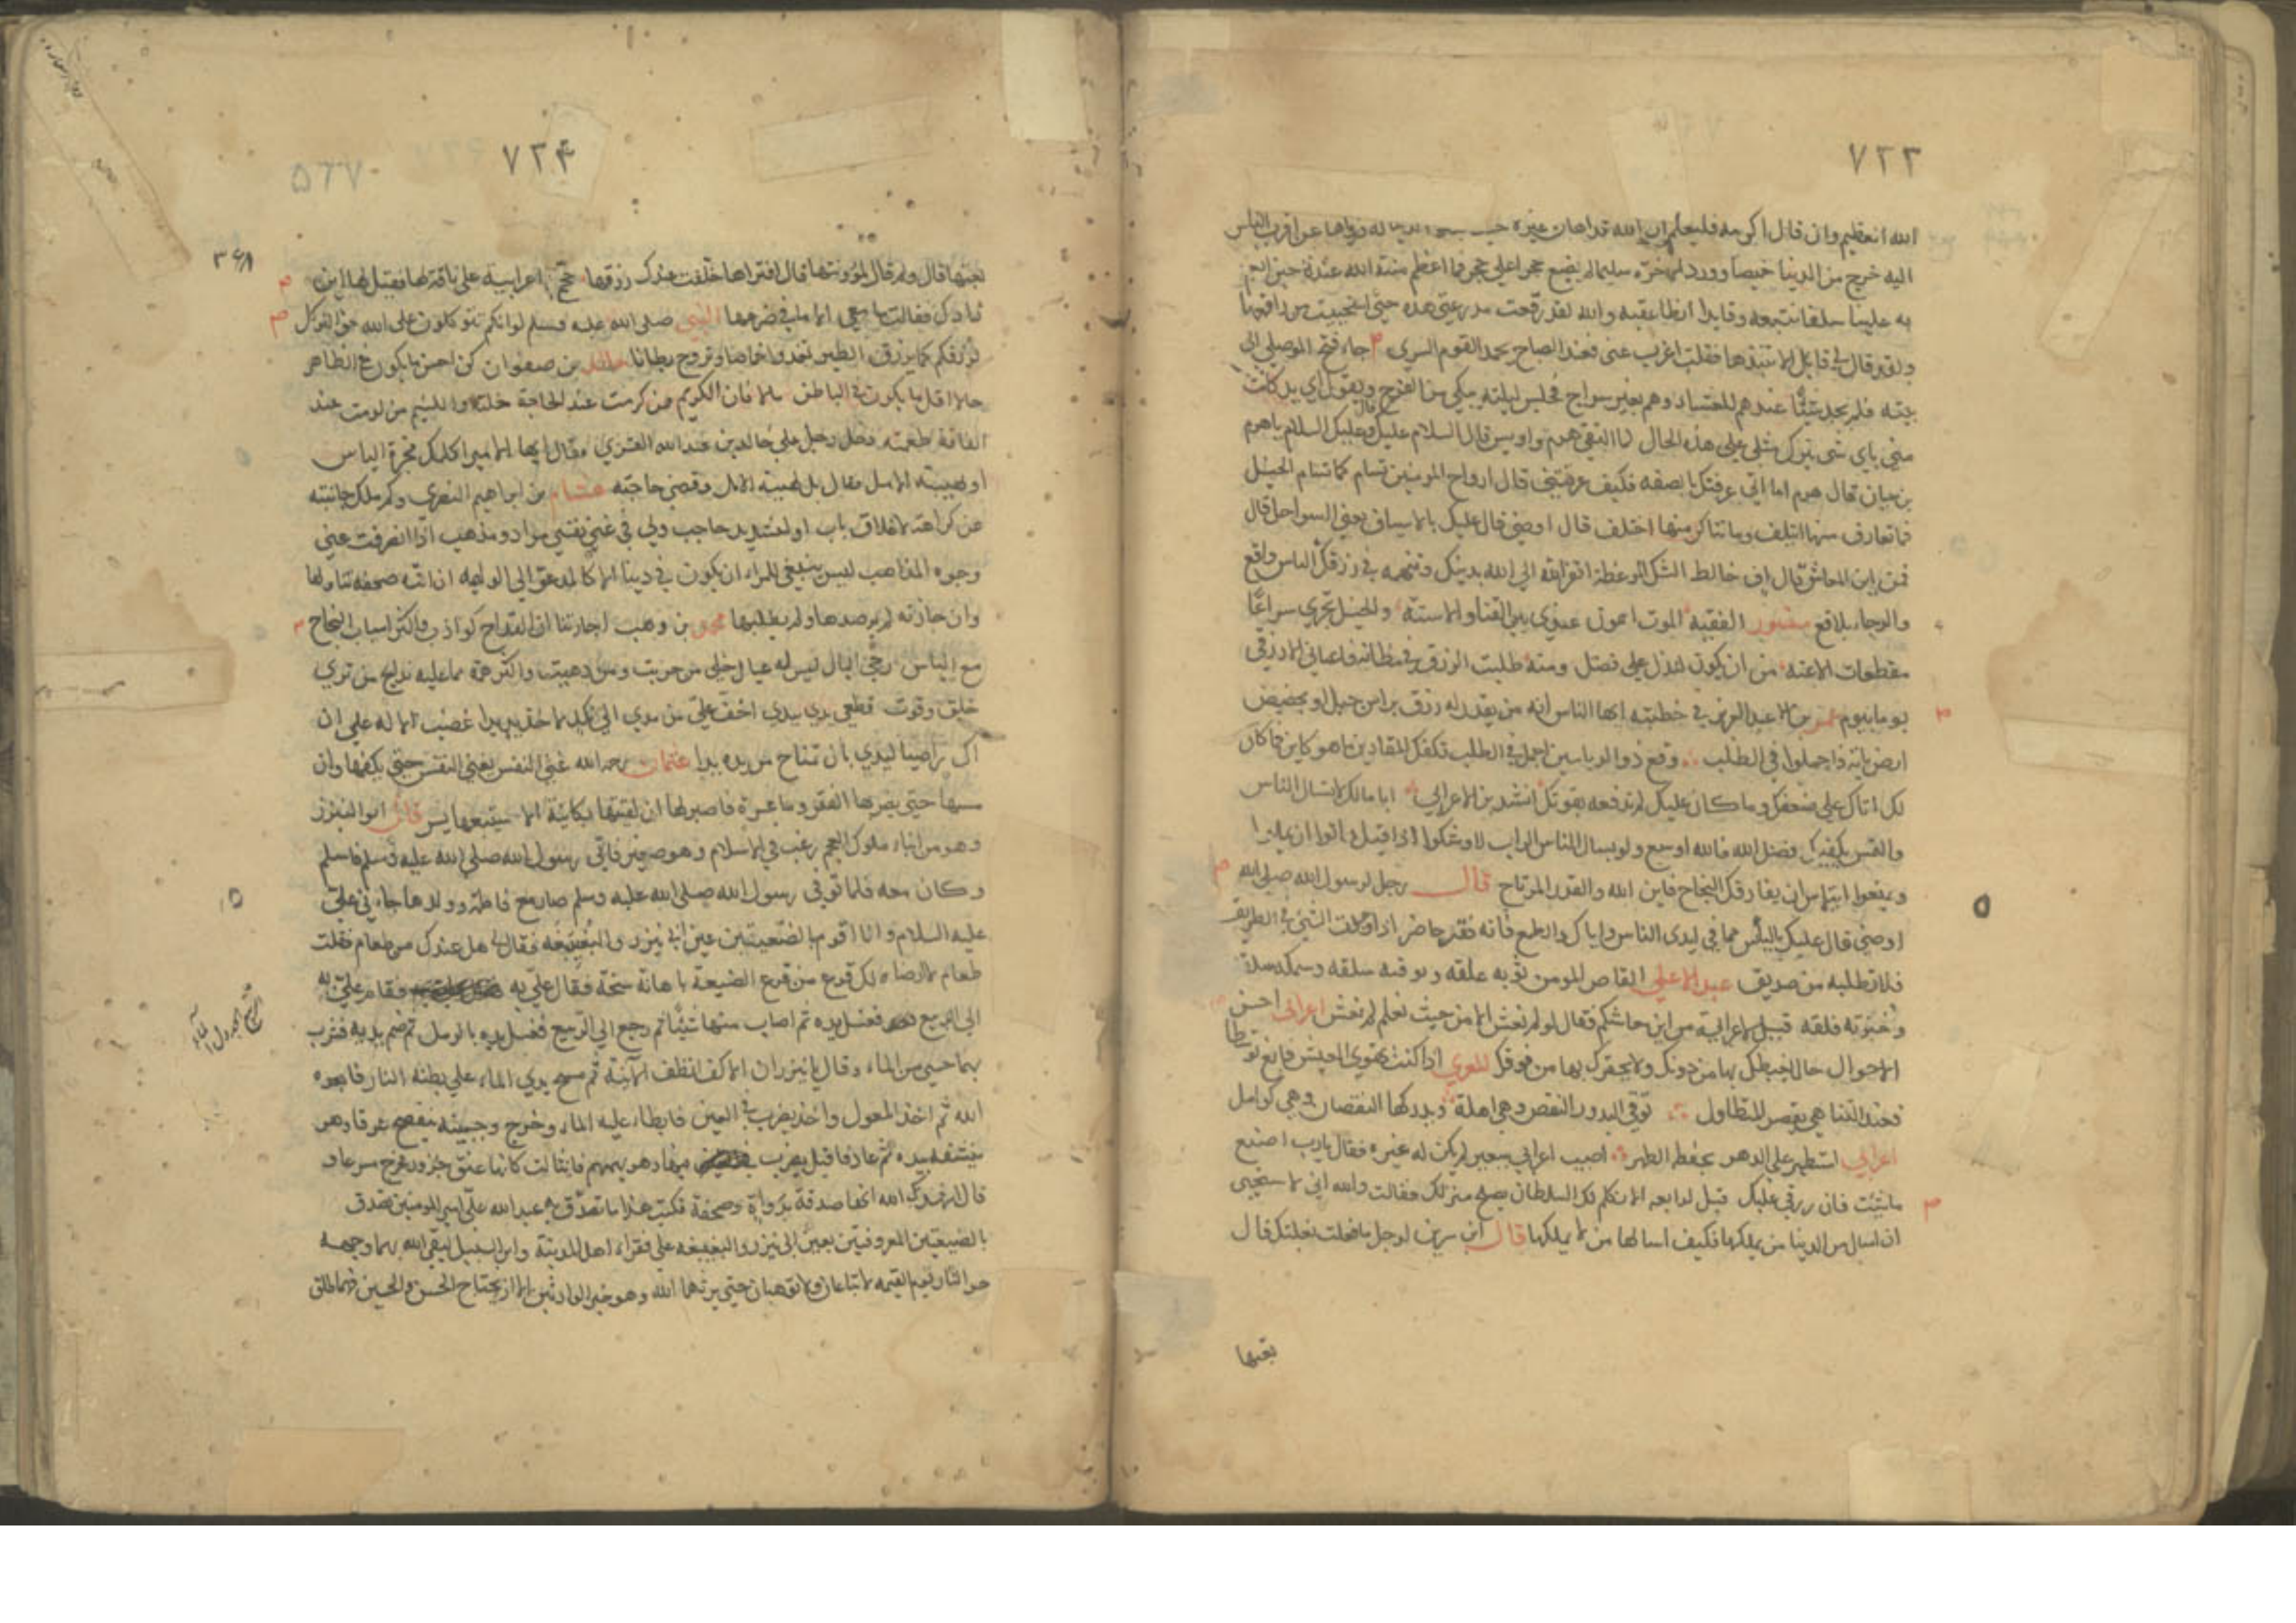 ٧٢٣
الله العظيم وان قال اكرمه فليعلم ان الله قد اهان غيره حيث بسط الدنيا له وزواها عن اقرب الناس
اليه خرج من الدنيا خميصا وورد الاخرة سليما لم يضع حجرا على حجر فما اعظم منة الله عندنا حين انعم
به علينا سلفا نتبعه وقايدا نطا عقبه والله لقد رقعت مدرعتي هذه حتى استحييت من راقعها
ولقد قال لي قايل الا تنبذها فقلت اغرب عني فعند الصباح يحمد القوم السري جاء فتح الموصلي الى
بيته فلم يجد شيئا عندهم للعشاء وهم بغير سراج فجلس ليلته يبكي من الفرح ويقول اي يد كانت
مني باي شي يترك مثلي على هذه الحال لما التقى هرم واويس قال السلام عليك قال وعليك السلام يا هرم
بن حيان قال هرم اما اني عرفتك بالصفه فكيف عرفتني قال ان ارواح المومنين تشام كما تشام الخيل
فما تعارف منها ائتلف وما تناكر منها اختلف قال اوصني قال عليك بالاسياف يعني السواحل قال
فمن اين المعاش قال اف خالط الشك الموعظة اتفر الله الى الله بدينك وتتهمه في رزقك الناس واقع
والرجاء بلاقع منصور الفقيه الموت اسهل عندي بين القنا والاسنة والخيل تجري سراعا
مقطعات الاعنه من ان يكون لنذل علي فضل ومنه طلبت الرزق في مظانه فاعياني الا رزقي
يوما بيوم عمر بن عبد العزيز في خطبته ايها الناس انه من يقدر له رزق براس جبل او بحضيض
ارض ياته فاجملوا في الطلب وقع ذو الرياستين اجمل في الطلب تكفك المقادير ما هو كاين فما كان
لك اتاك على ضعفك وما كان عليك لم تدفعه بقوتك انشد بن الاعرابي ابا مالك لا تسال الناس
والتمس بكفيك فضل الله فالله اوسع ولو يسال الناس التراب لاوشكوا اذا قيل هاتوا ان يملوا
ويمنعوا ايتماس ان يفارقك النجاح فاين الله والقدر المرتاح قال رجل لرسول الله صلى الله
اوصني قال عليك بالياس مما في ايدى الناس واياك والطمع فانه فقر حاضر اذا وجدت الشي في الطريق
فلا تطلبه من صديق عبد الاعلى القاص المومن ثوبه علقه ومرقته سلقه وسمكته سلقة
وخبزته فلقه قيل لاعرابية من اين معاشكم فقال لو لم نعش الا من حيث نعلم لم نعش اعرابي احسن
الاحوال حال يغبطك بها من دونك ولا يحقرك بها من فوقك المعري اذا كنت تهوى العيش فابغ توسطا
فعند التناهي يقصر المتطاول توقى البدور النقص وهي اهلة ويدركها النقصان وهي كوامل
اعرابي استظهر على الدهر بخفة الظهر اصيب اعرابي ببعير لم يكن له غيره فقال يا رب اصنع
ما شئت فان رزقي عليك قيل لرابعه الا نكلم لك السلطان يصلح منزلك فقالت والله اني لاستحيي
ان اسال من الدنيا من يملكها فكيف اسالها من لا يملكها قال ابن سيرين لرجل ما فعلت ببغلتك قال
بعتها
٧٢٤
بعتها قال ولم قال لمؤونتها قال افتراها خلفت عندك رزقها حج اعرابية على ناقة لها فقيل لها اين
زادك فقالت ما معي الا ما في ضرعها النبي صلى الله عليه وسلم لو انكم تتوكلون على الله حق التوكل
لرزقكم كما يرزق الطير تغدوا خماصا وتروح بطانا خالد بن صفوان كن احسن ما يكون في الظاهر
حالا اقل ما يكون في الباطن مالا فان الكريم من كرمت عند الحاجة خلته واللئيم من لومت عند
الفاقة طعمته دخل رجل على خالد بن عبد الله القسري فقال ايها الامير اكلمك
او لهيبة الامل فقال بل لهيبة الامل وقضى حاجته هشام بن ابراهيم البصري وكم ملك جانبته
عن كراهة لاغلاق باب او لتشديد حاجب ولي في غنى نفسي مراد ومذهب اذا انصرفت عني
وجوه المذاهب ليس ينبغي للمراء ان يكون في دينا الا كالمدعو الى الوليمة ان اتته صحفه تناولها
وان جازته لم يرصدها ولم يطلبها محمد بن وهب اجارتنا ان القداح كواذب واكثر اسباب النجاح
مع الياس رخي البال ليس له عيال خلي من حربت ومن دهيت
قطعي يدي بيدي اخف علي من مدي الى نكد غضبت
اك راضيا ليدي بان تمتاح من يده يدا عثمان رحمه الله غنى النفس يغني النفس حتى يكفها وان
مسها حتى يضر بها الفقر وما عسرة فاصبر لها ان لقيتها بكائنة الا سيتبعها يسر قال ابو النيزر
وهو من ابناء ملوك العجم رغب في الاسلام وهو صغير فاتى رسول الله صلى الله عليه وسلم فاسلم
وكان معه فلما توفي رسول الله صلى الله عليه وسلم صار مع فاطمة وولدها جاءني علي
عليه السلام وانا اقوم بالضيعتين عين ابي نيزر والبغيبغه فقال لي هل عندك من طعام فقلت
طعام لا ارضاه لك قرع من قرع الضيعة باهالة سنخة فقال علي به فقام علي
الى الربيع فغسل يده ثم اصاب منها شيئا ثم رجع الى الربيع فغسل يده بالرمل ثم ضم يديه فشرب
بهما حسى من الماء وقال يا نيزر ان الاكف انظف الآنية ثم مسح يدي الماء على بطنه النار فابعده
الله ثم اخذ المعول واخذ يضرب في العين فابطاء عليه الماء وخرج وجبينه ينفضح عرقا وهو
ينشفه بيده ثم عاد فاقبل يضرب فيها وهو يهمهم فانثالت كانها عنق جزور فخرج مسرعا و
قال اشهد الله انها صدقة بدواة وصحفة فكتب هذا ما تصدق به عبد الله علي امير المومنين تصدق
بالضيعتين المعروفتين بعين ابي نيزر والبغيبغه على فقراء اهل المدينة وابن السبيل ليقي الله بهما وجهه
حر النار يوم القيمه لا تباعا ولا توهبا حتى يرثهما الله وهو خير الوارثين الا ان يحتاج الحسن والحسين فهما طلق